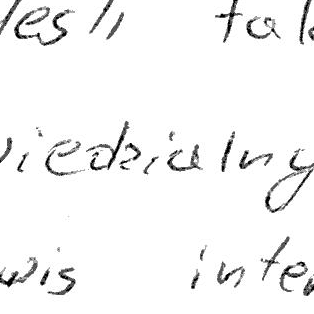 leśli tak
wiedzialny
wis inter